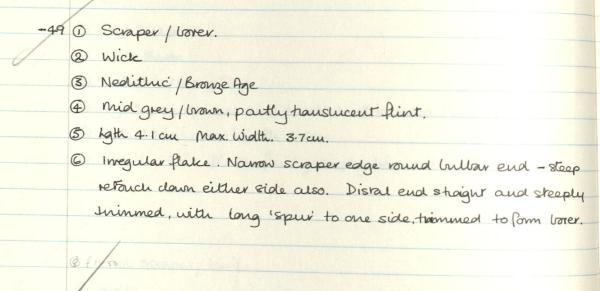 -49 ① Scraper / borer.
② Wick
③ Neolithic / Bronze Age
④ Mid grey / brown, partly translucent flint.
⑤ Lgth 4.1 cm Max. Width. 3.7cm.
⑥ Irregular flake. Narrow scraper edge round bulbar end - steep
retouch down either side also. Distal end straight and steeply
trimmed, with long 'spur' to one side, trimmed to form borer.